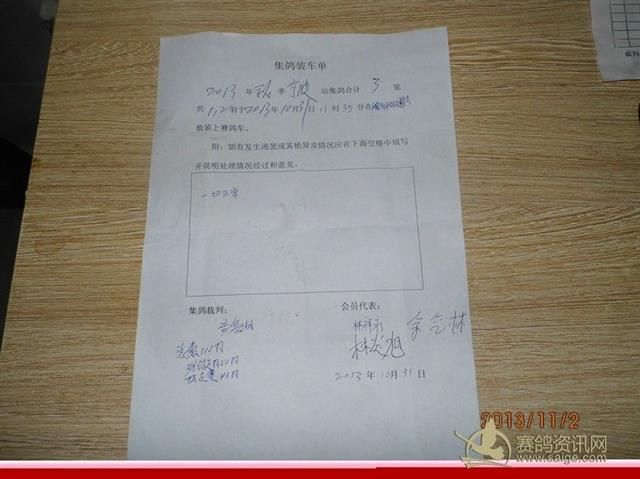 集鸽装车单
2013 年 秋 季 宁波 站集鸽合计 3 笼
共 112 羽于2013年10月31日11时35分在
数装上赛鸽车。
附:如有发生逃笼或其他异常情况应在下面空格中填写
并说明处理情况经过和意见。
一切正常
集鸽裁判:
会员代表:
林祥永
余定林
林炎旭
总数112羽
43羽
2013 年 10月 31 日
2013/11/2
赛鸽资讯网
www.saige.com